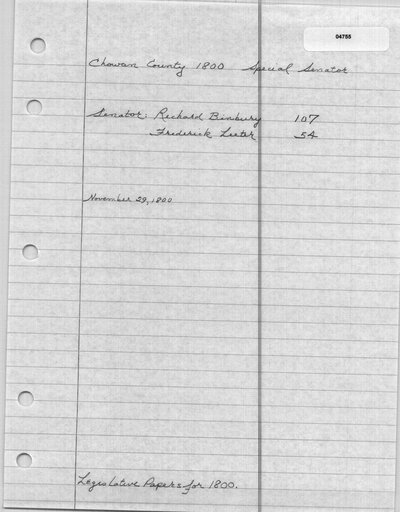 04755
Chowan County 1800 Special Senator
Senator: Richard Benbury 107
Frederick Luter 54
November 29, 1800
Legislative Papers for 1800.